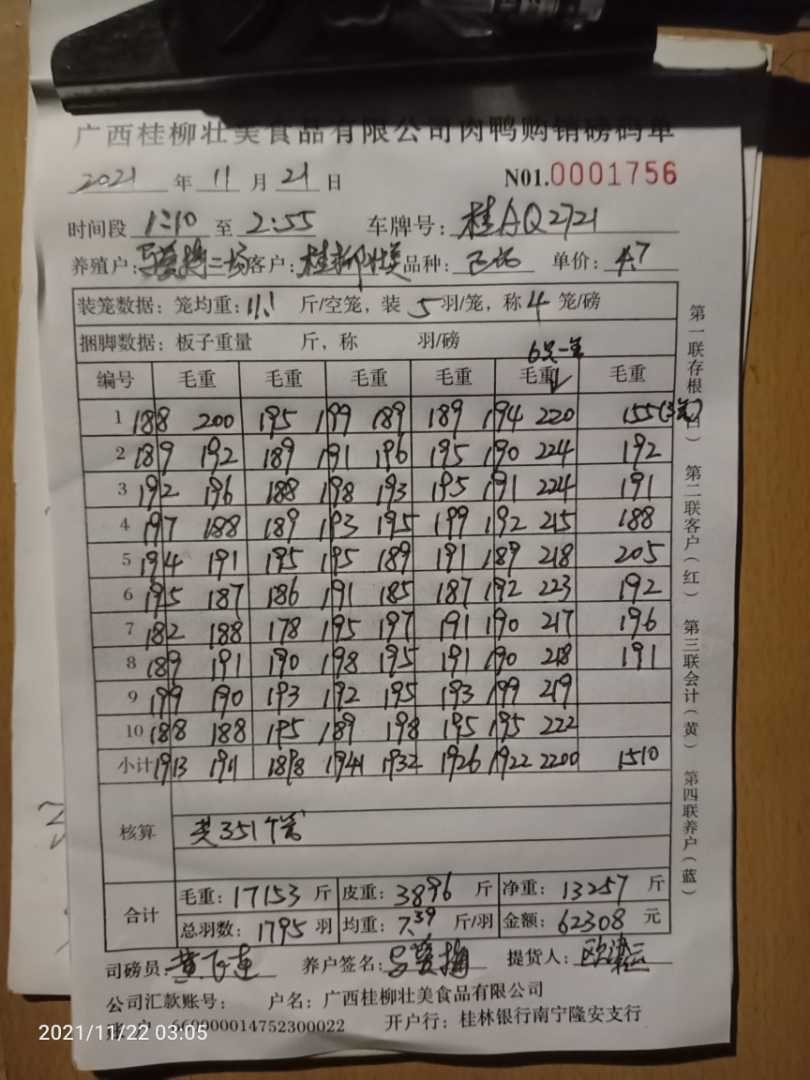 广西桂柳壮美食品有限公司肉鸭购销磅码单
2021 年 11 月 21 日 N01.0001756
时间段 1:10 至 2:55 车牌号: 桂AQ2721
养殖户: 二场 客户: 桂柳壮美 品种: 单价: 4.7
装笼数据: 笼均重: 11.1 斤/空笼, 装 5 羽/笼, 称 4 笼/磅
捆脚数据: 板子重量 斤, 称 羽/磅
6只一笼
编号 毛重 毛重 毛重 毛重 毛重 毛重
1 188 200 195 199 189 189 194 220 155(3笼)
2 189 192 189 191 196 195 190 224 192
3 192 196 188 198 193 195 191 224 191
4 197 188 189 193 195 199 192 215 188
5 194 191 195 195 189 191 189 218 205
6 195 187 186 191 185 187 192 223 192
7 182 188 178 195 197 191 190 217 196
8 189 191 190 198 195 191 190 218 191
9 199 190 193 192 195 193 199 219
10 188 188 195 189 198 195 195 222
小计 1913 1911 1898 1941 1932 1926 1922 2200 1510
核算 共351个笼
合计 毛重: 17153 斤 皮重: 3896 斤 净重: 13257 斤
总羽数: 1795 羽 均重: 7.39 斤/羽 金额: 62308 元
司磅员: 黄飞连 养户签名: 提货人:
公司汇款账号: 户名: 广西桂柳壮美食品有限公司
000014752300022 开户行: 桂林银行南宁隆安支行
2021/11/22 03:05
第一联存根
第二联客户(红)
第三联会计(黄)
第四联养户(蓝)